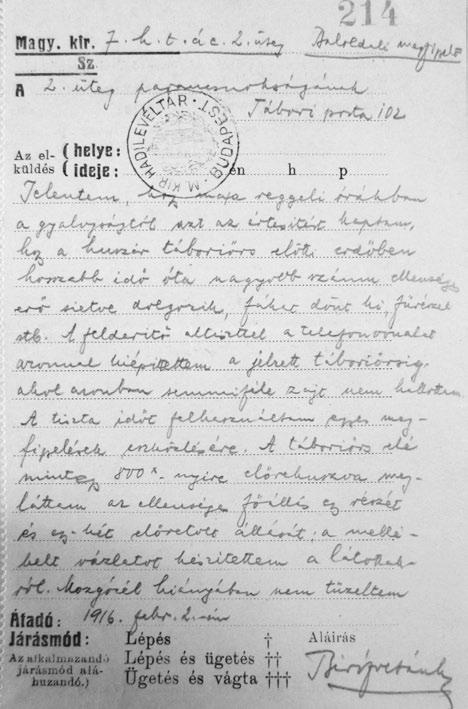 214
Magy. kir. 7. h. t. ác. 2. üteg Baloldali megfigyelő
Sz
A 2. üteg parancsnokságának
Tábori posta 102
M. KIR HADILEVÉLTÁR · BUDAPEST
Az el- (helye:
küldés (ideje: én h p
Jelentem, hogy ma reggeli órákban
a gyalogságtól azt az értesítést kaptam,
hogy a huszár tábori őrs előtti erdőben
hosszabb idő óta nagyobb számú ellenség
erő sietve dolgozik, fákat dönt ki, fűrészel
stb. A felderítő altiszttel a telefonvonalat
azonnal kiépítettem a jelzett táboriőrsig,
ahol azonban semmiféle zajt nem hallottam.
A tiszta időt felhasználtam egyes meg-
figyelések eszközlésére. A táboriőrs elé
mintegy 800x-nyire előrekúszva meg-
láttam az ellenséges főállás egy részét
és egy-két előretolt állását; a mellé-
kelt vázlatot készítettem a látottak-
ról. Mozgócél hiányában nem tüzeltem
Átadó: 1916. febr. 2.-án
Járásmód: Lépés † Aláírás
Az alkalmazandó Lépés és ügetés ††
járásmód alá-
huzandó.) Ügetés és vágta †††